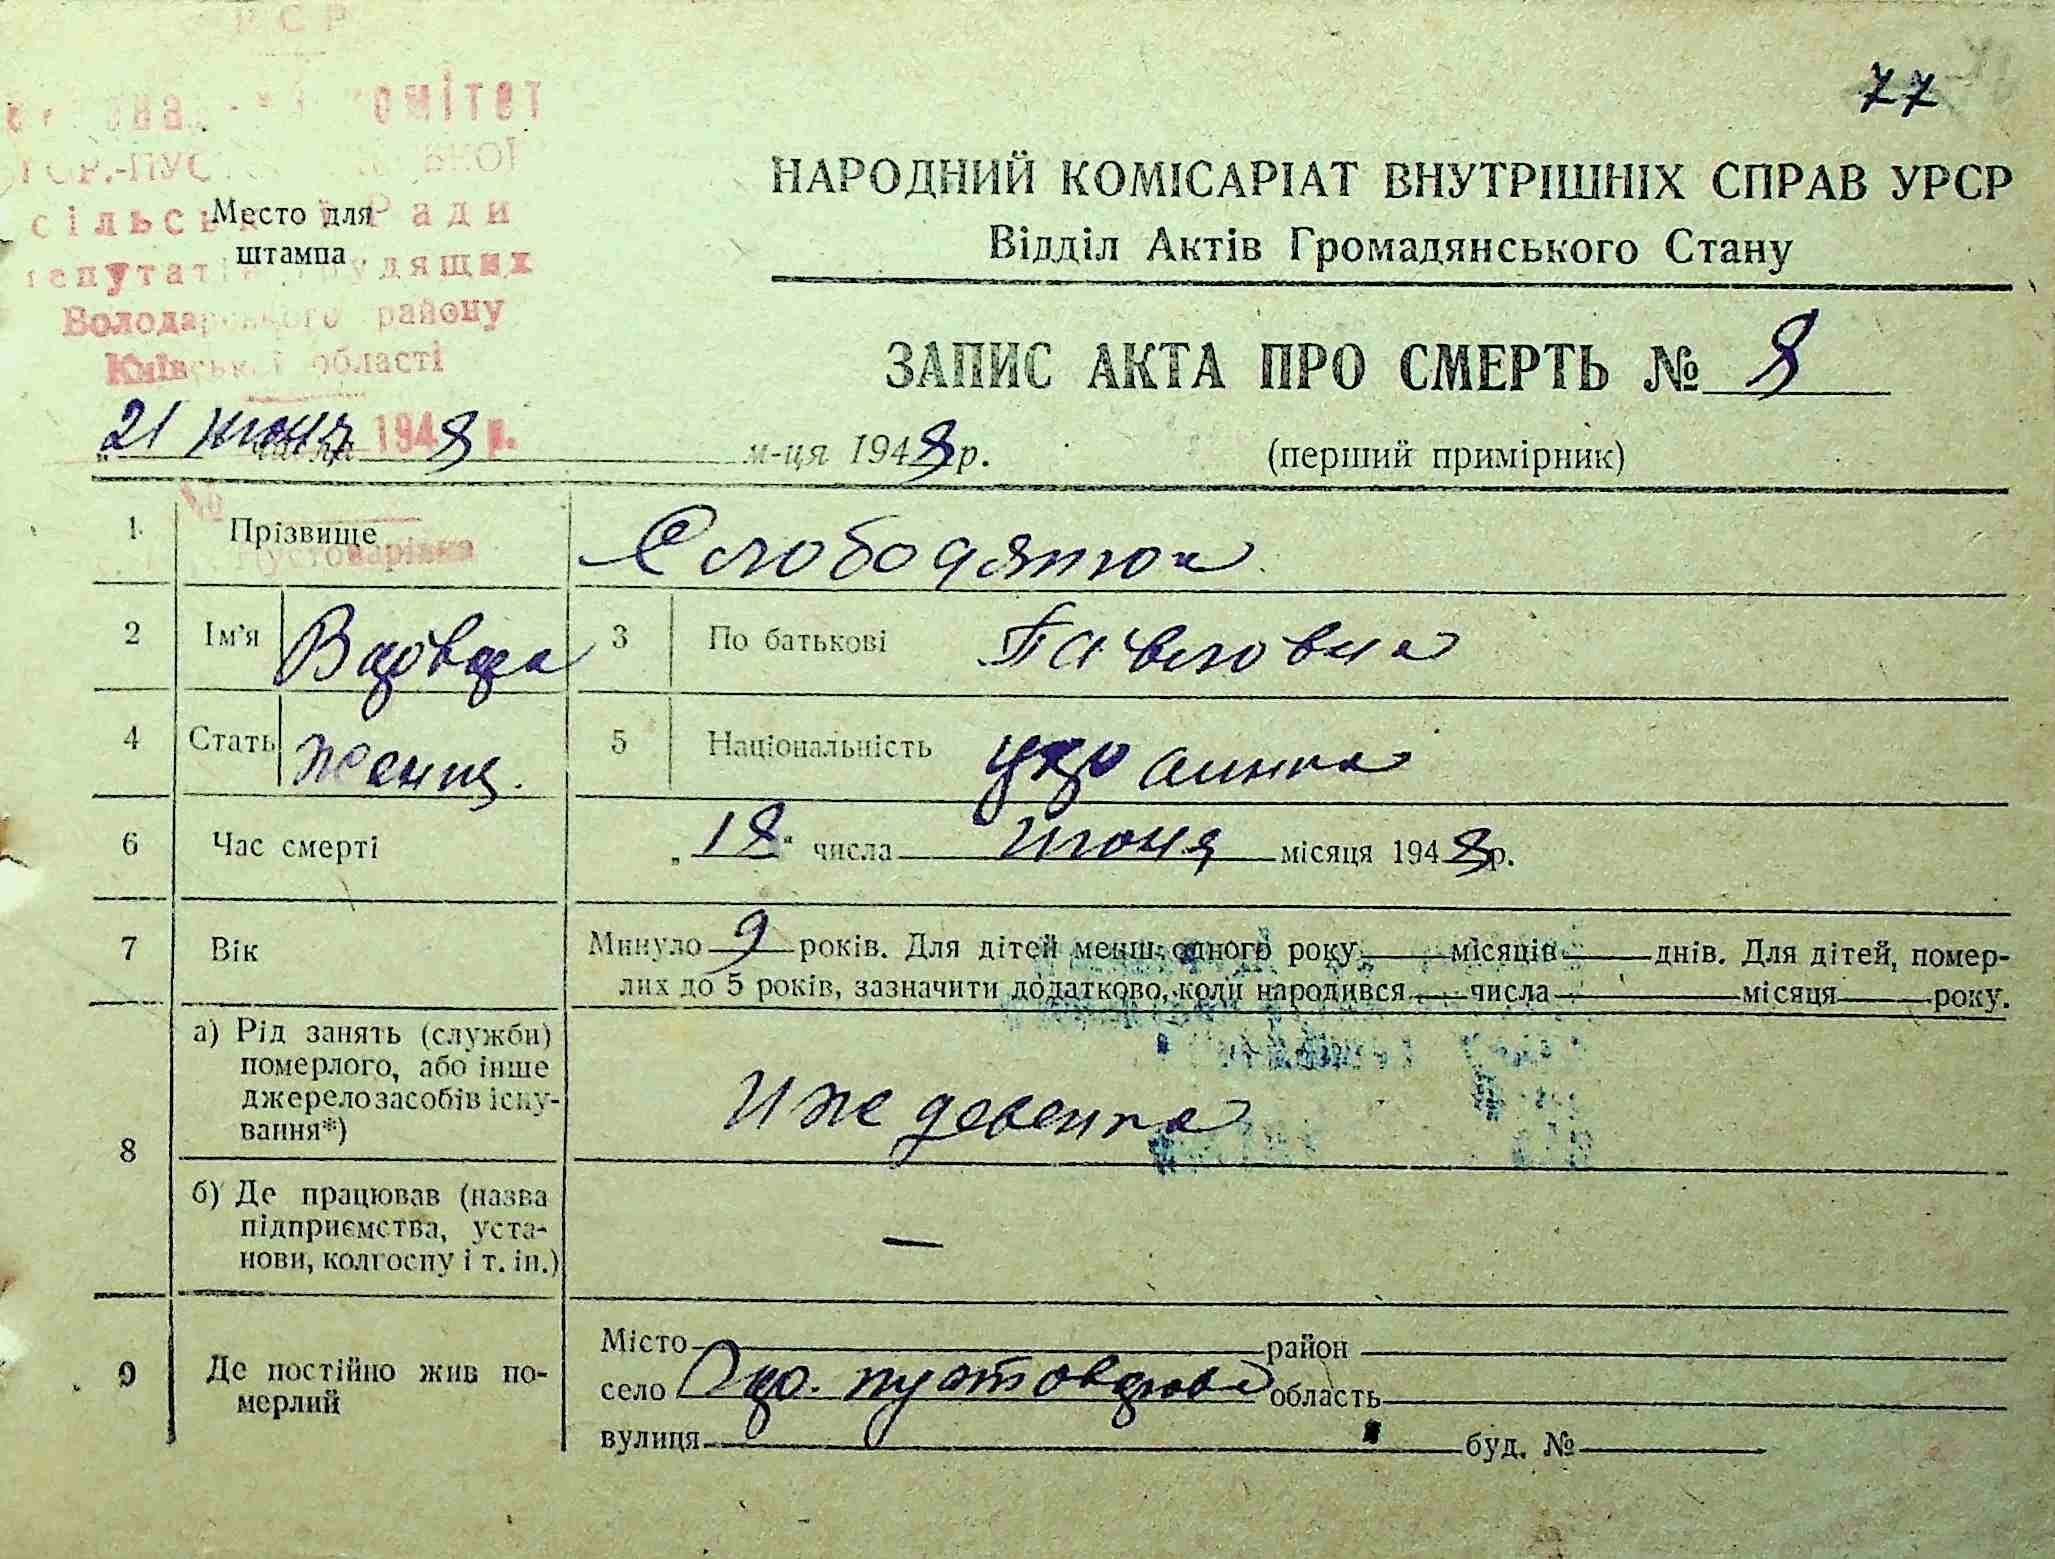 РСР
комітет
сільської Ради
депутатів трудящих
Володарського району
Київської області
Место для
штампа
77
НАРОДНИЙ КОМІСАРІАТ ВНУТРІШНІХ СПРАВ УРСР
Відділ Актів Громадянського Стану
ЗАПИС АКТА ПРО СМЕРТЬ № 8
21 июня 1948 р.
„ числа м-ця 1948 р. (перший примірник)
№
Пустоварівка
1 Прізвище
2 Ім'я 3 По батькові Павловна
4 Стать женщ. 5 Національність украинка
6 Час смерті „18“ числа июня місяця 1948 р.
7 Вік Минуло 9 років. Для дітей менш одного року місяців днів. Для дітей, помер-
лих до 5 років, зазначити додатково, коли народився числа місяця року.
8 а) Рід занять (служби)
померлого, або інше
джерело засобів існу-
вання*)
иждевенка
б) Де працював (назва
підприємства, уста-
нови, колгоспу і т. ін.)
—
9 Де постійно жив по-
мерлий
Місто район
село область
вулиця буд. №